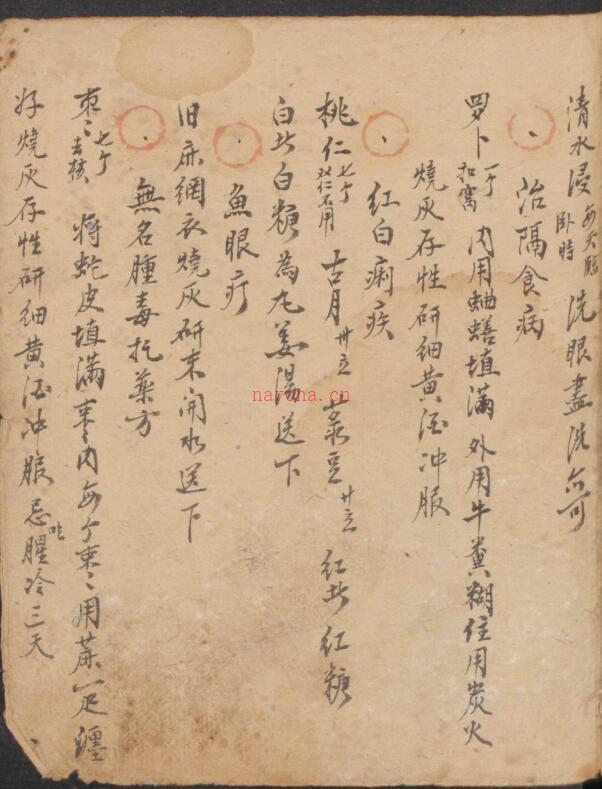 清水浸每天臨卧時洗眼盡洗亦可
治隔食病
罗卜一个扣窩内用蛐蟮填滿外用牛糞糊住用炭火
燒灰存性研细黄酒冲服
红白痢疾
桃仁七个双仁不用古月卅立菉豆廿立红此红糖
白此白糖為丸姜湯送下
魚眼疔
旧麻網衣燒灰研末開水送下
無名腫毒托藥方
枣〻七个去核将蛇皮填滿枣〻内每个枣〻用麻一疋纏
好燒灰存性研细黄酒冲服忌吃腥冷三天
naroha.cn